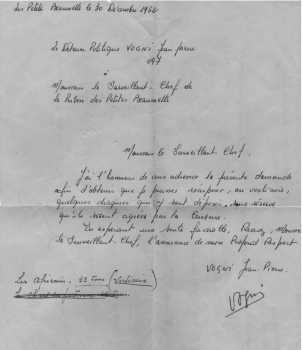 Les Petite Baumette le 30 Décembre 1964
Le Détenu Politique VOGNI Jean pierre
197
à
Monsieur le Surveillant-Chef de
la Prison des Petites Baumette
Monsieur le Surveillant Chef.
J'ai l'honneur de vous adresser la présente demande
afin d'obtenir que je puisse récupérer, au vestiaire,
quelques disques qui y sont déposés, sous réserve
qu'ils soient agréés par la Censure.
En espérant une suite favorable, Recevez, Monsieur
le Surveillant-Chef, l'assurance de mon Profond Respect.
VOGNI Jean Pierre.
22 (Vestiaire)
Vogni